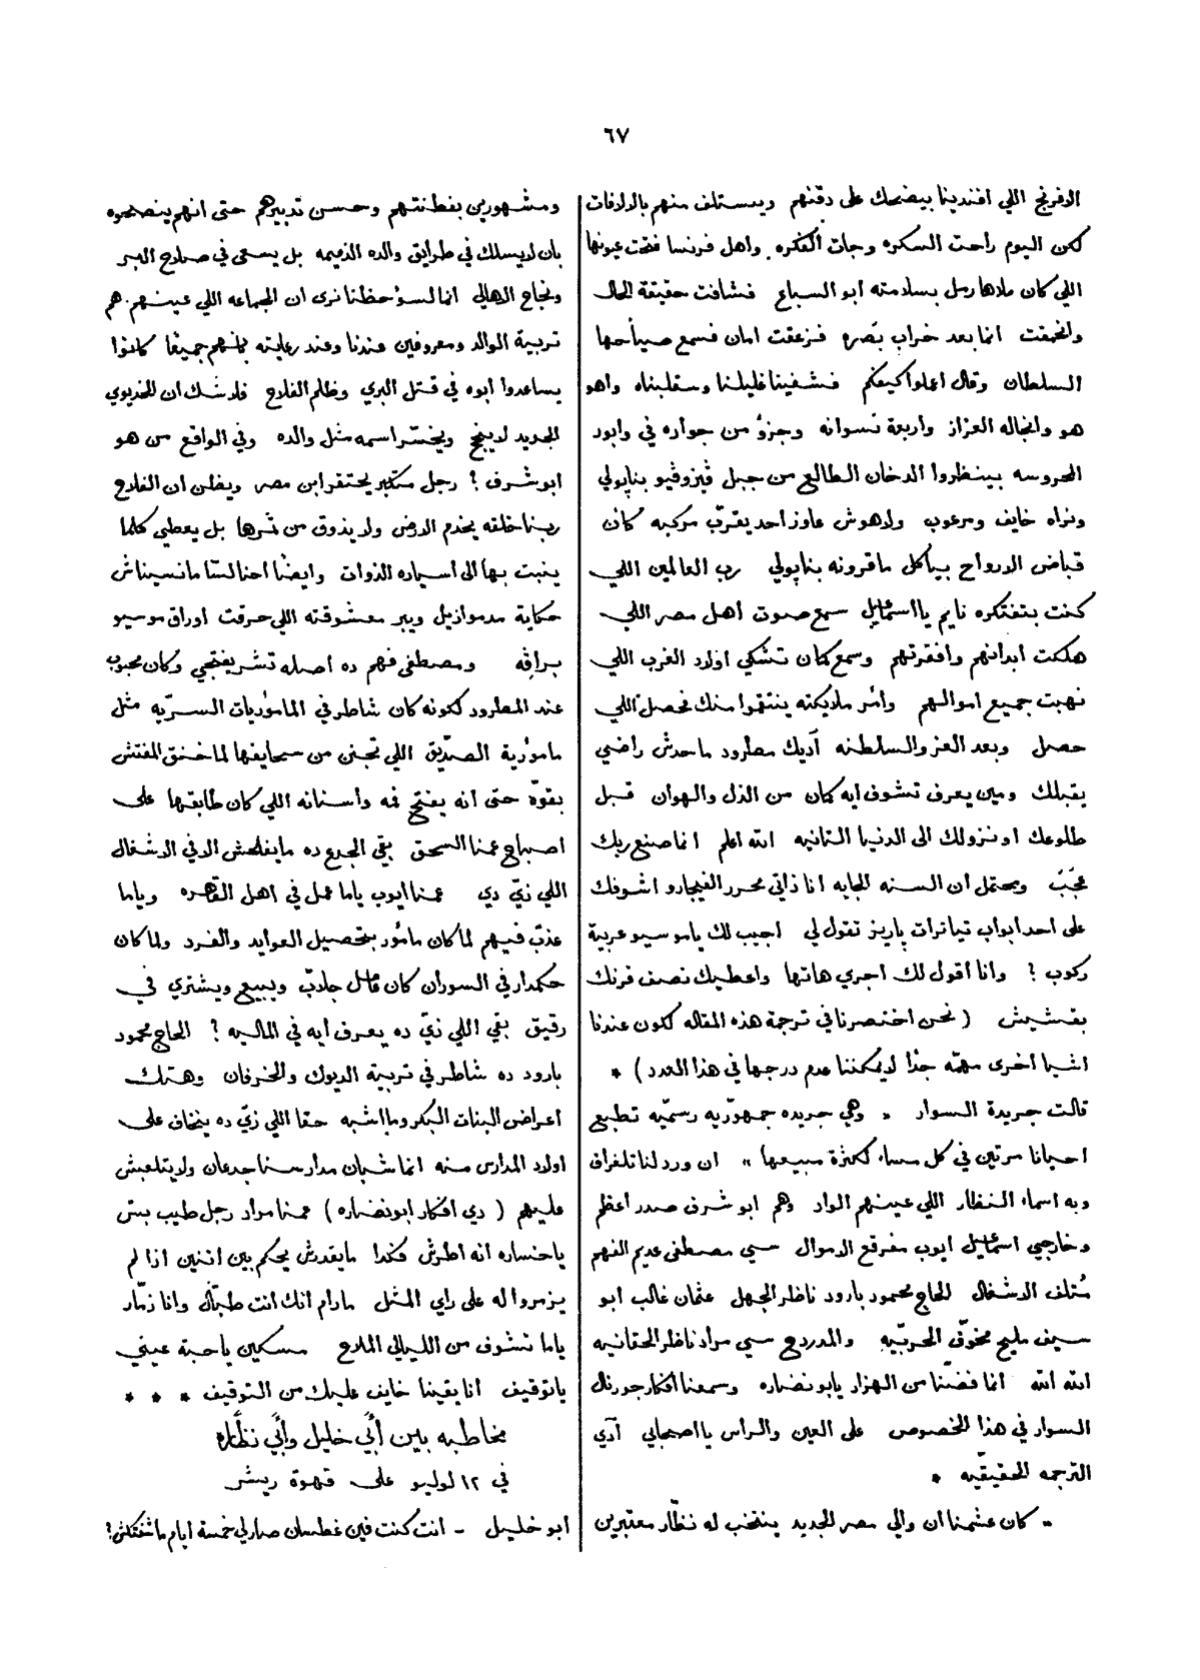 ٦٧
الافرنج اللي افندينا بيضحك على دقنهم ويستلف منهم بالالافات
لكن اليوم راحت السكره وجات الفكره. واهل فرنسا فتحت عيونها
اللي كان ملاها رمل بسلامته ابو السباع فشافت حقيقة الحال
وانخمقت انما بعد خراب بصره فزعقت امان فسمع صياحها
السلطان وقال اعملوا كيفكم فشفينا غليلنا وسقلبناه واهو
هو وانجاله العزاز واربعة نسوانه وجزؤ من جواره في وابور
المحروسه بينظروا الدخان الطالع من جبل ڤيزوڤيو بناپولي
ونراه خايف ومرعوب ولاهوش عاوز احد يقرّب مركبه كأن
قباض الارواح بيأكل ماقرونه بناپولي رب العالمين اللي
كنت بتفتكره نايم يا اسماعيل سمع صوت اهل مصر اللي
هلكت ابدانهم وافقرتهم وسمع كمان تشكي اولاد الغرب اللي
نهبت جميع اموالهم وأمر ملايكته ينتقموا منك فحصل اللي
حصل وبعد العز والسلطنه آديك مطرود ماحدش راضي
يقبلك ومين يعرف تشوف ايه كمان من الذل والهوان قبل
طلوعك او نزولك الى الدنيا التانيه الله اعلم انما صنع ربك
عجَبْ ويحتمل ان السنه الجايه انا ذاتي محرر الفيجارو اشوفك
على احد ابواب تياترات پاريز تقول لي اجيب لك يا موسيو عربية
ركوب ؟ وانا أقول لك اجري هاتها واعطيك نصف فرنك
بقشيش ( نحن اختصرنا في ترجمة هذه المقاله لكون عندنا
اشيا اخرى مهمّه جدًا لا يمكننا عدم درجها في هذا العدد ) *
قالت جريدة السوار „ وهي جريده جمهوّريه رسميّه تطبع
احيانا مرتين في كل مساء لكثرة مبيعها „ ان ورد لنا تلغراف
وبه اسماء النظار اللي عينهم الواد وهم ابو شرف صدر أعظم
وخارجي اسماعيل ايوب مفرقع الاموال سي مصطفى عديم الفهم
مُتلف الاشغال الحاج محمود بارود ناظر الجهل عثمان غالب ابو
سيف مليح مخوّف الحربيّه والمدردح سي مراد ناظر الحقانيه
الله الله انما فضّنا من الهزار يا بونضاره وسمعنا افكار جورنال
السوار في هذا الخصوص على العين والرأس يا اصحابي آدي
الترجمه الحقيقيّه *
„ كان عشمنا ان والي مصر الجديد ينتخب له نظّار معتبرين
ومشهورين بفطنتهم وحسن تدبيرهم حتى انهم ينصحوه
بان لا يسلك في طرايق والده الذميمه بل يسعى في صلاح البر
ونجاح الاهالي انما لسؤ حظنا نرى ان الجماعه اللي عينهم هم
تربية الوالد ومعروفين عندنا وعند رعايته بانهم جميعًا كانوا
يساعدوا ابوه في قتل البري وظلم الفلاح فلا شك ان الخديوي
الجديد لا ينجح ويخسّر اسمه مثل والده وفي الواقع من هو
ابو شرف ؟ رجل متكبّر يحتقر ابن مصر ويظن ان الفلاح
ربنا خلقه يخدم الارض ولا يذوق من ثمرها بل يعطي كلما
ينبت بها الى اسياده الذوات وايضًا احنا لسّا مانسيناش
حكاية مدموازيل ويبر معشوقته اللي حرقت اوراق موسيو
براڤه ومصطفى فهم ده اصله تشريفتجي وكان محبوب
عند المطرود لكونه كان شاطر في المأموريات السريّه مثل
مأمورية الصدّيق اللي تجنن من سيحايفها لما خنق المفتش
بقوّة حتى انه يفتح فمه وأسنانه اللي كان طابقها على
اصباع عمنا اسحق بقي الجدع ده ما يفلحش الا في الاشغال
اللي زيّ دي عمنا ايوب ياما عمل في اهل القاهره وياما
عذب فيهم لما كان مأمور بتحصيل العوايد والفرد ولما كان
حكمدار في السودان كان عامل جلاّب ويبيع ويشتري في
رقيق بقي اللي زيّ ده يعرف أيه في الماليه ؟ الحاج محمود
بارود ده شاطر في تربية الديوك والخرفان وهتك
اعراض البنات البكر وما اشبه حقا اللي زيّ ده ينخاف على
اولاد المدارس منه انما شبان مدارسنا جدعان ولا يتلعبش
عليهم ( دي افكار ابونضاره ) عمنا مراد رجل طيب بس
ياخساره انه اطرش فكدا ما يقدرش يحكم بين اتنين اذا لم
يزمروا له على راي المثل مادام انك انت طبّال وانا زمّار
ياما نشوف من الليالي الملاح مسكين ياحبة عيني
ياتوفيق انا بقينا خايف عليك من التوقيف * * *
مخاطبه بين أبي خليل وأبي نظّاره
في ١٢ لوليو على قهوة ريشر
أبو خليل - انت كنت فين غطسان صار لي خمسة ايام ماشفتكش؟